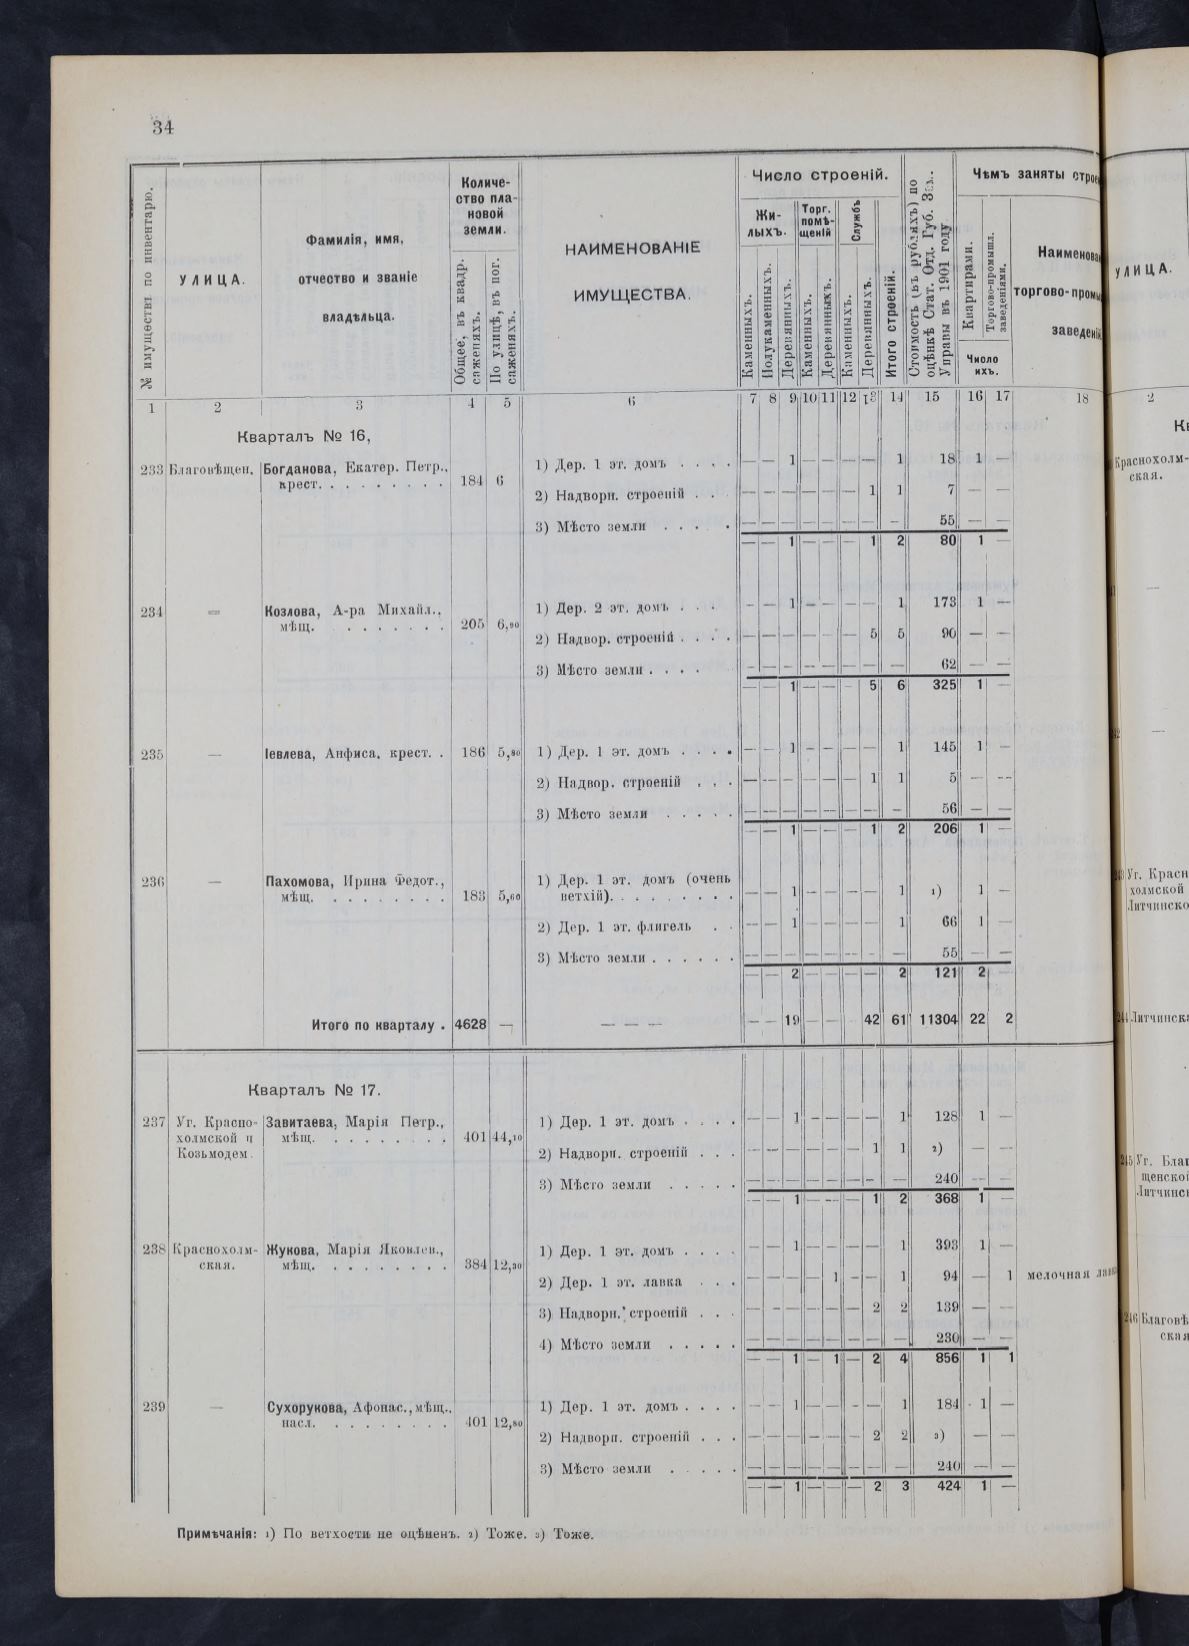 34
№ имуществъ по инвентарю.
УЛИЦА.
Фамилія, имя,
отчество и званіе
владѣльца.
Количе-
ство пла-
новой
земли.
Общее, въ квадр.
саженяхъ.
По улицѣ, въ пог.
саженяхъ.
НАИМЕНОВАНІЕ
ИМУЩЕСТВА.
Число строеній.
Жи-
лыхъ.
Торг.
помѣ-
щеній
Службъ
Каменныхъ.
Полукаменныхъ.
Деревянныхъ.
Каменныхъ.
Деревянныхъ.
Каменныхъ.
Деревянныхъ.
Итого строеній.
Стоимость (въ рубляхъ) по
оцѣнкѣ Стат. Отд. Губ. Зем.
Управы въ 1901 году
Чѣмъ заняты
Квартирами.
Торгово-промышл.
заведеніями.
Число
ихъ.
торгово-
1 2 3 4 5 6 7 8 9 10 11 12 13 14 15 16 17 18
Кварталъ № 16,
233 Благовѣщен. Богданова, Екатер. Петр., 1) Дер. 1 эт. домъ . . . . — — 1 — — — — 1 18 1 —
крест. . . . . . . . . 184 6
2) Надворн. строеній . . . — — — — — — 1 1 7 — —
3) Мѣсто земли . . . . . — — — — — — — — 55 — —
— — 1 — — — 1 2 80 1 —
234 — Козлова, А-ра Михайл., 1) Дер. 2 эт. домъ . . . — — 1 — — — — 1 173 1 —
мѣщ. . . . . . . . 205 6,90
2) Надвор. строеній . . . . — — — — — — 5 5 90 — —
3) Мѣсто земли . . . . — — — — — — — — 62 — —
— — 1 — — — 5 6 325 1 —
235 — Іевлева, Анфиса, крест. . 186 5,90 1) Дер. 1 эт. домъ . . . . — — 1 — — — — 1 145 1 —
2) Надвор. строеній . . . — — — — — — 1 1 5 — —
3) Мѣсто земли . . . . . — — — — — — — — 56 — —
— — 1 — — — 1 2 206 1 —
236 — Пахомова, Ирина Федот., 1) Дер. 1 эт. домъ (очень
мѣщ. . . . . . . . . 183 5,60 ветхій). . . . . . . . . — — 1 — — — — 1 1) 1 —
2) Дер. 1 эт. флигель . . — — 1 — — — — 1 66 1 —
3) Мѣсто земли . . . . . . — — — — — — — — 55 — —
— — 2 — — — — 2 121 2 —
Итого по кварталу . 4628 — — — — — — 19 — — — 42 61 11304 22 2
Кварталъ № 17.
237 Уг. Красно- Завитаева, Марія Петр., 1) Дер. 1 эт. домъ . . . . — — 1 — — — — 1 128 1 —
холмской и мѣщ. . . . . . . . . 401 44,10
Козьмодем. 2) Надворн. строеній . . . — — — — — — 1 1 2) — —
3) Мѣсто земли . . . . . — — — — — — — — 240 — —
— — 1 — — — 1 2 368 1 —
238 Краснохолм- Жукова, Марія Яковлев., 1) Дер. 1 эт. домъ . . . . — — 1 — — — — 1 393 1 —
ская. мѣщ. . . . . . . . . 384 12,30
2) Дер. 1 эт. лавка . . . — — — — 1 — — 1 94 — 1 мелочная
3) Надворн. строеній . . . — — — — — — 2 2 139 — —
4) Мѣсто земли . . . . . — — — — — — — — 230 — —
— — 1 — 1 — 2 4 856 1 1
239 — Сухорукова, Афонас., мѣщ., 1) Дер. 1 эт. домъ . . . . — — 1 — — — — 1 184 1 —
насл. . . . . . . . . 401 12,80
2) Надворн. строеній . . . — — — — — — 2 2 3) — —
3) Мѣсто земли . . . . . — — — — — — — — 240 — —
— — 1 — — — 2 3 424 1 —
Примѣчанія: 1) По ветхости не оцѣненъ. 2) Тоже. 3) Тоже.
УЛИЦА.
2
Краснохолм-
ская.
—
—
Уг. Красн
холмской
Литчинско
Литчинск
Уг. Благ
щенской
Литчинс
246 Благовѣ
ская